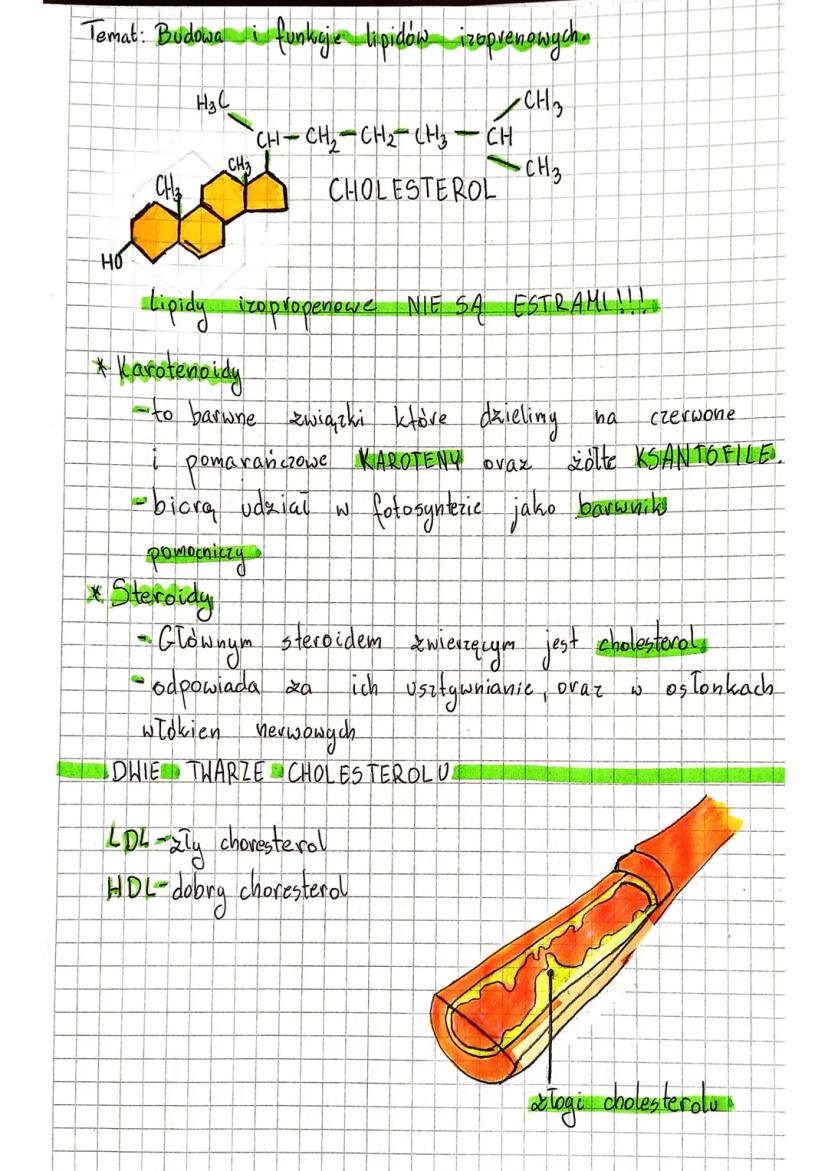 Temat: Budowa i funkcje lipidów izoprenowych.
H₃C
CH₃
CH-CH₂-CH₂-CH₃-CH
CH₃
CH₃
CH₃
CHOLESTEROL
HO
Lipidy izopropenowe NIE SĄ ESTRAMI!!!
* Karotenoidy
-to barwne związki które dzielimy na czerwone
i pomarańczowe KAROTENY oraz żółte KSANTOFILE.
-biorą udział w fotosyntezie jako barwnik
pomocniczy
* Steroidy
- Głównym steroidem zwierzęcym jest cholesterol,
-odpowiada za ich usztywnianie, oraz w osłonkach
włókien nerwowych
DWIE TWARZE CHOLESTEROLU
LDL-zły choresterol
HDL-dobry choresterol
złogi cholesterolu